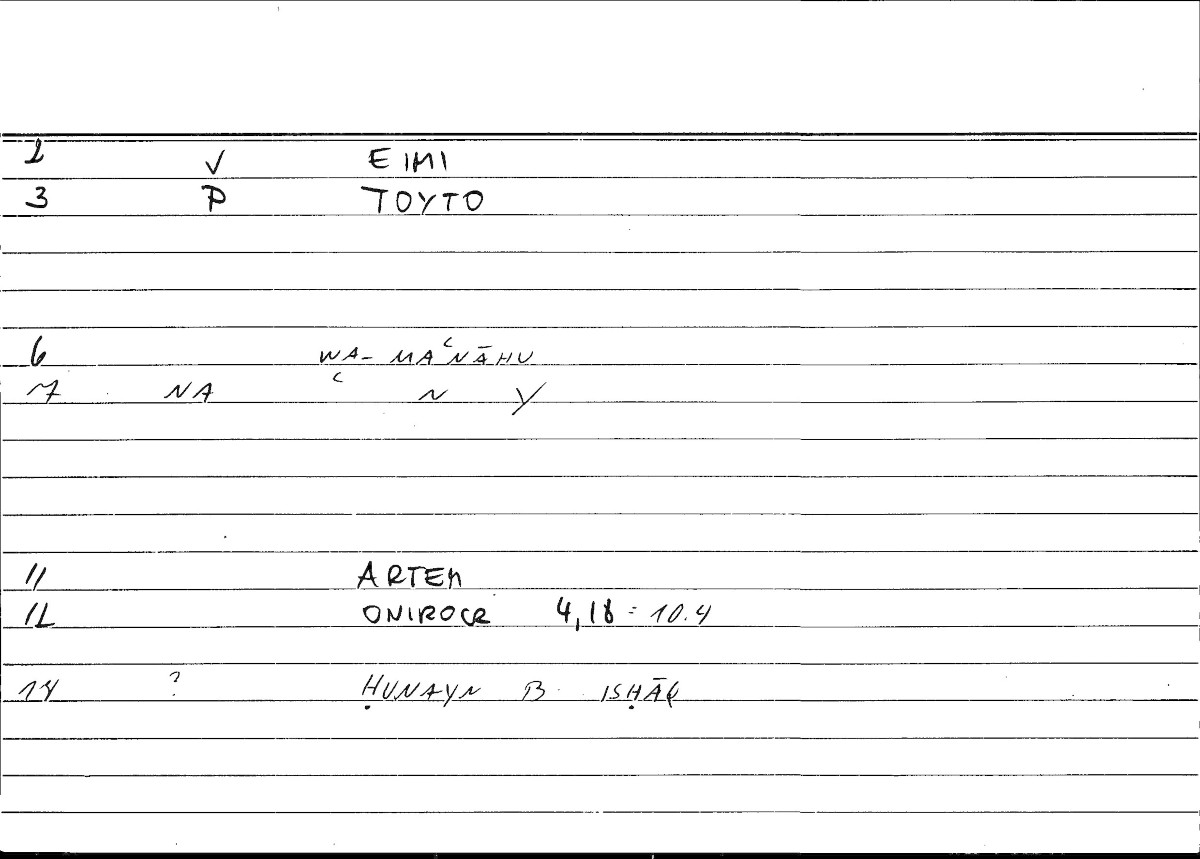 2 V EIMI
3 P TOYTO
6 WA- MAʿNĀHU
7 NA ʿ N Y
11 ARTEM
12 ONIROCR 4,18 : 10.4
14 ? ḤUNAYN B ISḤĀQ